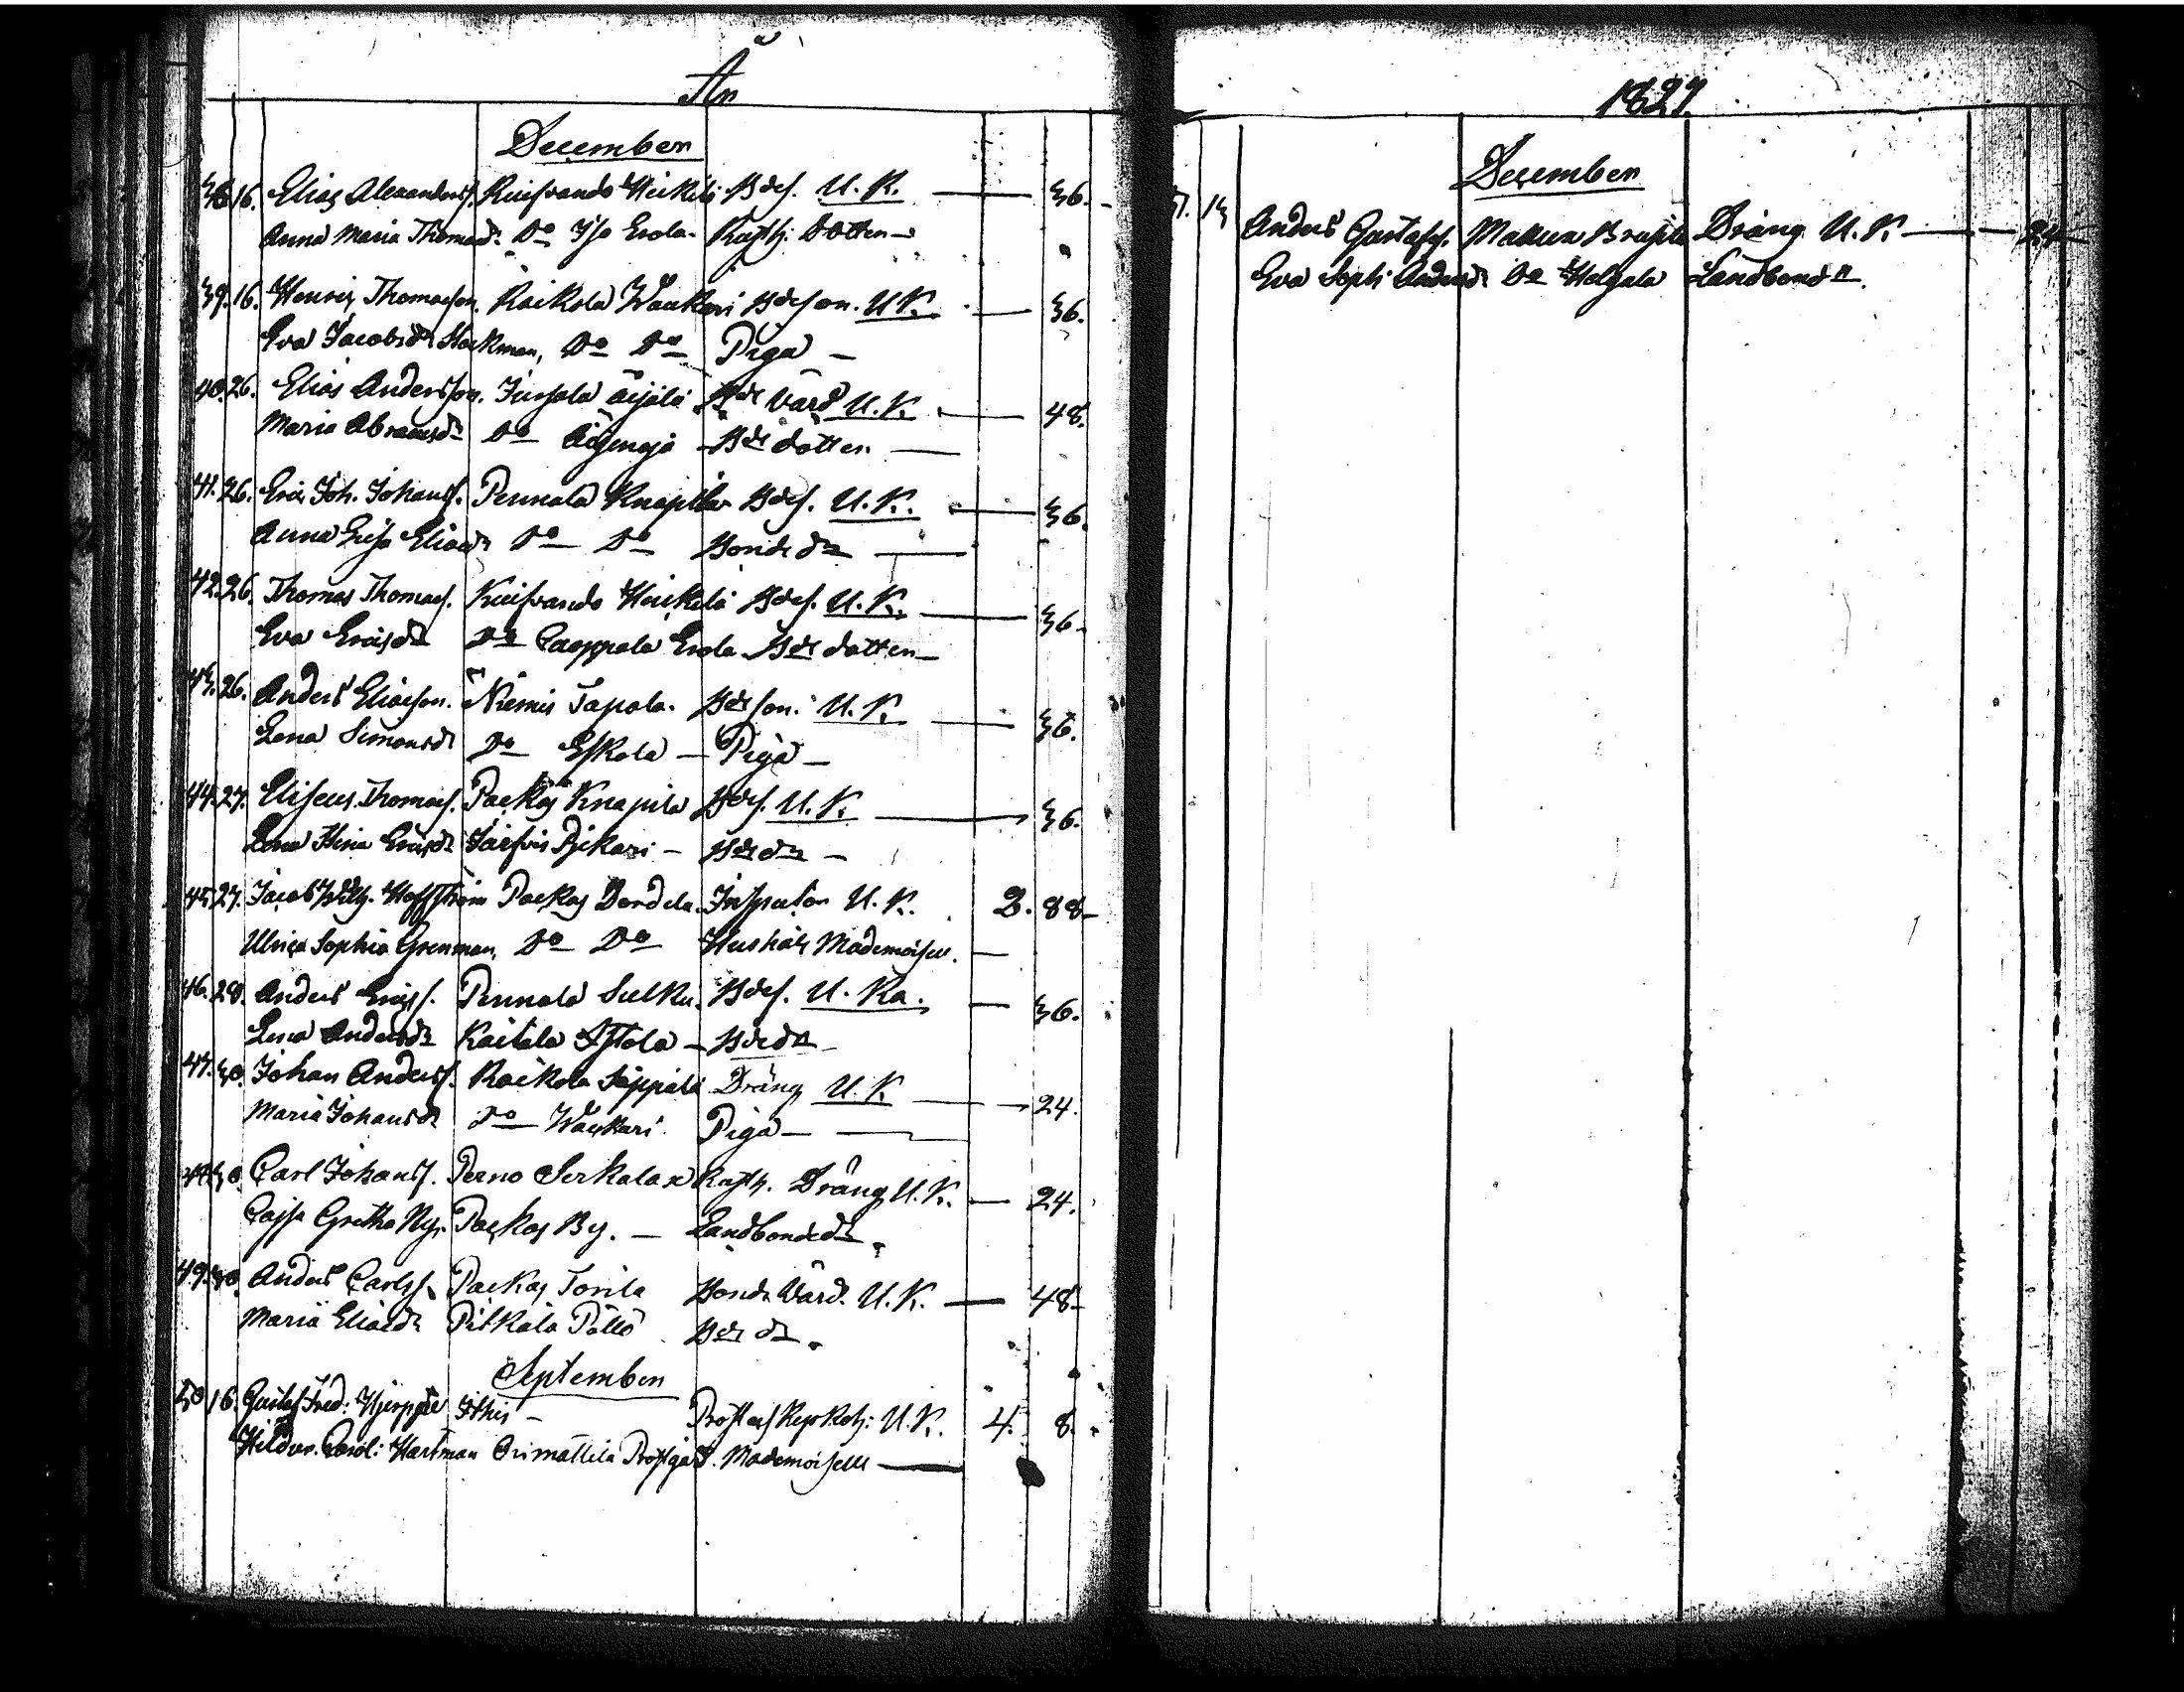 År
December
38. 16. Elias Alexanders. Kuifvando Heikilä Bdes. U. K. — 36.
Anna Maria Thomasdr Do Iso Erola Rusth: Dotter —
39. 16. Henric Thomasson. Raikola Waukari Bdeson. U. K. — 36.
Eva Jacobsdr Stockman, Do Do Piga —
40. 26. Elias Andersson. Junsala Äijälä Bde Värd U. K. — 48.
Maria Abramsdr Do Bde dotter —
41. 26. Eric Joh. Johanss. Pennala Knapila Bdes. U. K. — 36.
Anna Lisa Eliaedr Do Do Bonde dr —
42. 26. Thomas Thomass. Kuifvando Heikilä Bdes. U. K. — 36.
Eva Ericsdr Do Erola Bde dotter —
43. 26. Anders Eliasson. Niemis Tapola Bde son. U. K. — 36.
Lena Simonsdr Do Eskola — Piga —
44. 27. Eliseus Thomass. Packas Knapila Bdes. U. K. — 36.
Lena Stina Ericsdr Järfvis Pjikari — Bde dr —
45. 27. Jacob Wilh. Hoffström Packas Inspector U. K. 2. 88 —
Ulrica Sophia Grenman, Do Do Hushåls Mademoisell. —
46. 28. Anders Ericss. Pennala Sulku Bdes. U. Ka. — 36.
Lena Andersdr Kaitala — Bde dr —
47. 30. Johan Anderss. Raikola Seppälä Dräng U. K. — 24.
Maria Johansdr Do Waukari Piga —
48. 30. Carl Johanss. Perno Rusth. Dräng U. K. — 24.
Cajsa Gretha Ny. Packas By. — Landbondedr
49. 30. Anders Carlss. Packas Torila Bonde Värd. U. K. — 48 —
Maria Eliaedr Pitkälä Pöllö Bde dr
September
50 16. Gustaf Fred: Hjerppe Ithis — U. K. 4. 8.
Carol: Hartman Orimattila Prostgård. Mademoiselle —
1827.
December
51. 13 Anders Gustafss. Mallusa Brusila Dräng U. K. — 24
Eva Soph: Andersdr Do Helgala Landbonddr.